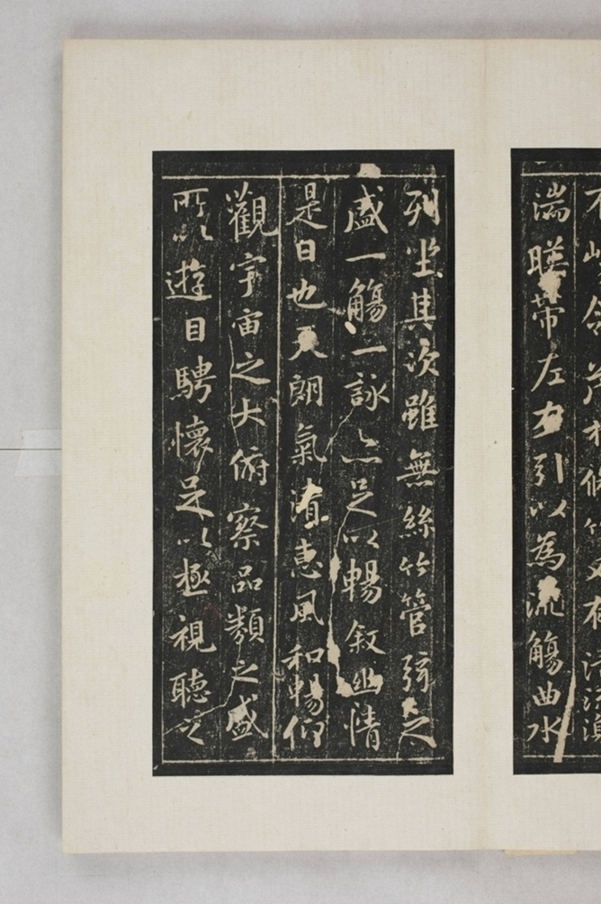 領茂林脩竹又有清流激
湍暎帶左右引以為流觴曲水
列坐其次雖無絲竹管弦之
盛一觴一詠亦足以暢敘幽情
是日也天朗氣清惠風和暢仰
觀宇宙之大俯察品類之盛
所以遊目騁懷足以極視聽之